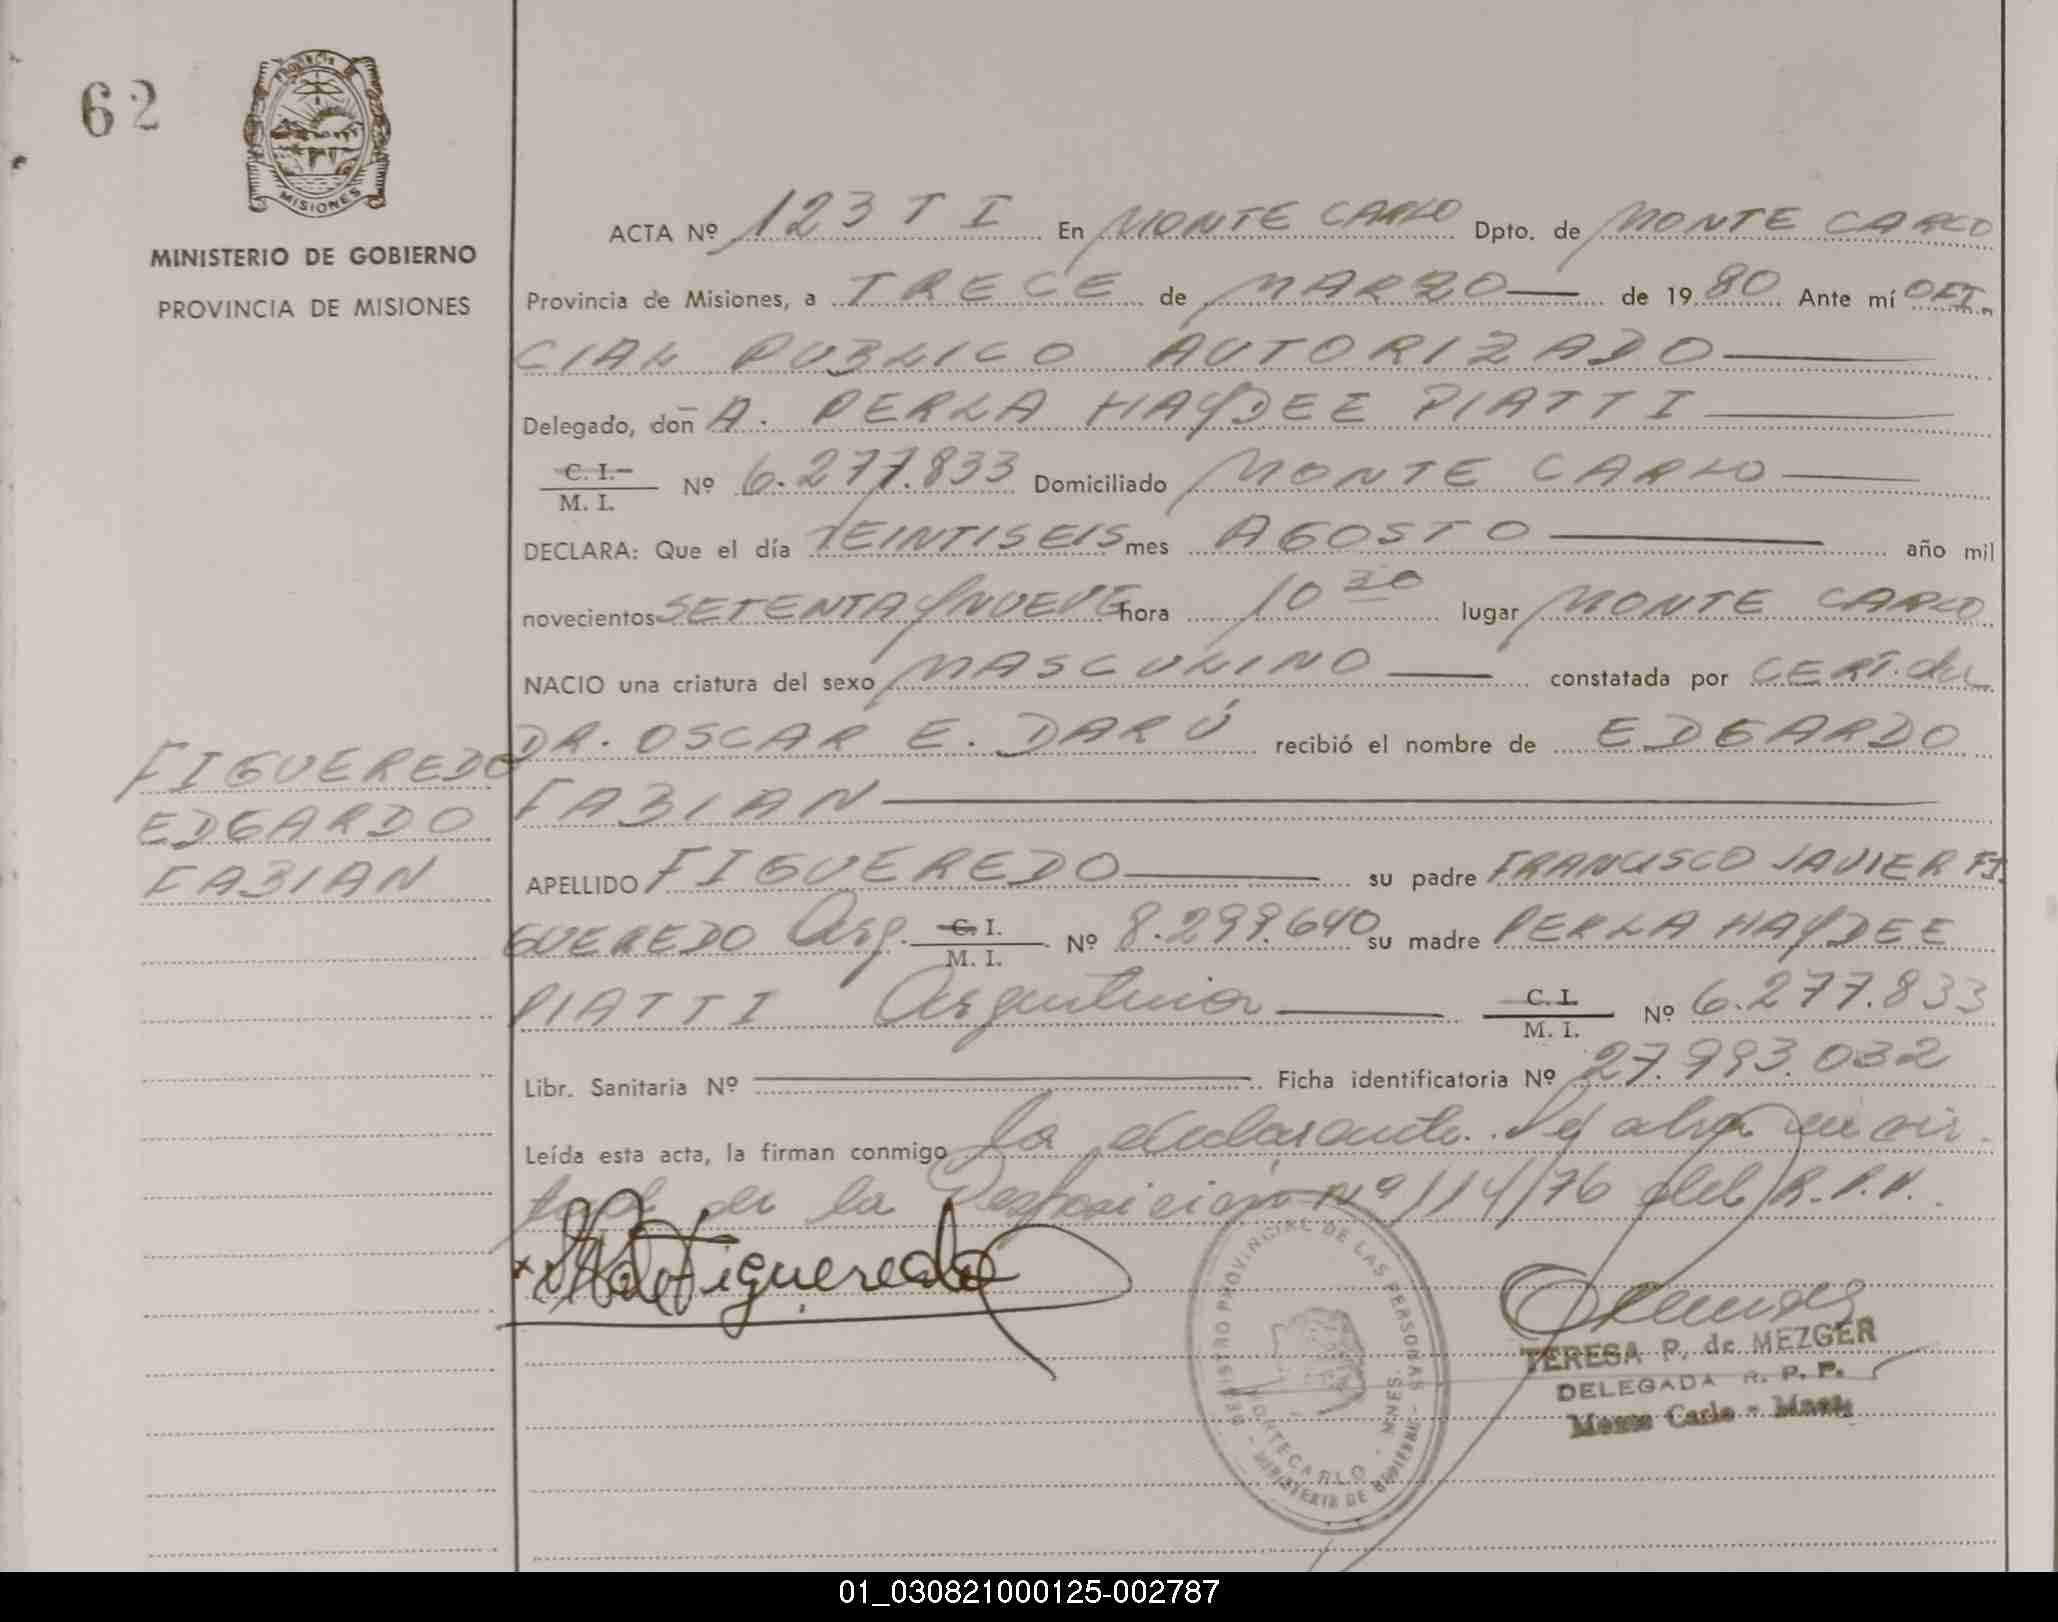 62
MISIONES
MINISTERIO DE GOBIERNO
PROVINCIA DE MISIONES
ACTA Nº 123 T I En MONTE CARLO Dpto. de MONTE CARLO
Provincia de Misiones, a TRECE de MARZO de 19 80 Ante mí OFI-
CIAL PUBLICO AUTORIZADO
Delegado, don A. PERLA HAYDEE PIATTI
C. I.
M. I. Nº 6.277.833 Domiciliado MONTE CARLO
DECLARA: Que el día VEINTISEIS mes AGOSTO año mil
novecientos SETENTA Y NUEVE hora 10 30 lugar MONTE CARLO
NACIO una criatura del sexo MASCULINO constatada por CERT. del
DR. OSCAR E. DARÚ recibió el nombre de EDGARDO
FABIAN
FIGUEREDO
EDGARDO
FABIAN
APELLIDO FIGUEREDO su padre FRANCISCO JAVIER FI
GUEREDO Arg. C. I.
M. I. Nº 8.299.640 su madre PERLA HAYDEE
PIATTI Argentina C. I.
M. I. Nº 6.277.833
Libr. Sanitaria Nº Ficha identificatoria Nº 27.993.032
Leída esta acta, la firman conmigo la declarante. Se labra en vir
tud de la Disposición nº 114/76 del R.P.P.
Figueredo
REGISTRO PROVINCIAL DE LAS PERSONAS
MONTECARLO - MNES.
MINISTERIO DE GOBIERNO
TERESA P. de MEZGER
DELEGADA R. P. P.
Monte Carlo - Mnes
01_030821000125-002787